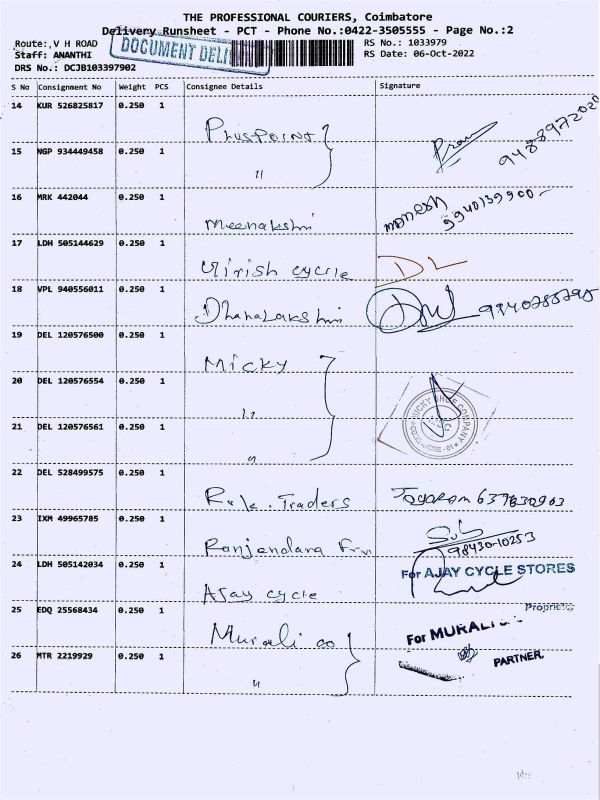 THE PROFESSIONAL COURIERS, Coimbatore
Delivery Runsheet - PCT - Phone No.:0422-3505555 - Page No.:2
Route: V H ROAD
DOCUMENT DELI
RS No.: 1033979
Staff: ANANTHI
RS Date: 06-Oct-2022
DRS No.: DCJB103397902
S No Consignment No Weight PCS Consignee Details Signature
14 KUR 526825817 0.250 1
PlusPoint
9488972020
15 NGP 934449458 0.250 1
"
16 MRK 442044 0.250 1
Meenakshi
manesh
9940139900
17 LDH 505144629 0.250 1
Girish cycle
DL
18 VPL 940556011 0.250 1
DhanaLakshmi
19 DEL 120576500 0.250 1
Micky
20 DEL 120576554 0.250 1
"
MICKY SHOE COMPANY
21 DEL 120576561 0.250 1
"
22 DEL 528499575 0.250 1
Traders
637830963
23 IXM 49965785 0.250 1
98430-10253
24 LDH 505142034 0.250 1
Ajay cycle
For AJAY CYCLE STORES
Proprietor
25 EDQ 25568434 0.250 1
Murali co
For MURALI
26 MTR 2219929 0.250 1
"
PARTNER.